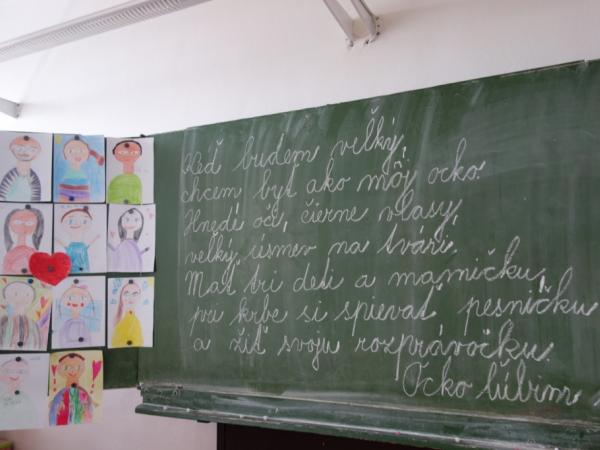 Keď budem veľký,
chcem byť ako môj ocko.
Hnedé oči, čierne vlasy,
veľký úsmev na tvári.
Mať tri deti a mamičku,
pri krbe si spievať pesničku
a žiť svoju rozprávočku.
Ocko ľúbim